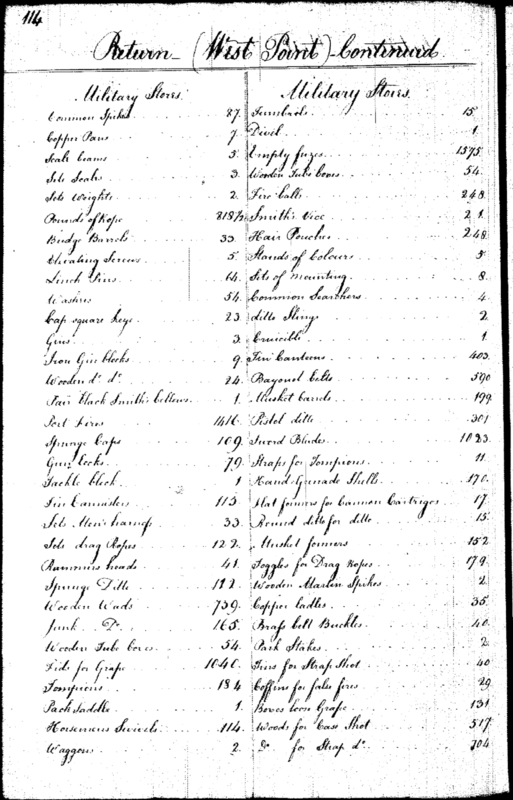 114
Return (West Point) Continued
Military Stores
Common Spikes 87.
Copper Pans 7.
Scale beams 5.
Sets Scales 3.
Sets Weights 2.
Pounds of Rope
Budge Barrels 33.
Cheating Screws 5.
Linch Pins 64.
Washers 54.
Cap square keys 23.
Gins 3.
Iron Gin blocks 9.
Wooden do do 24.
Pair black Smith's bellows 1.
Port fires 1416.
Spunge Caps 109.
Gun locks 79.
Tackle block 1
Tin Cannisters 113.
Sets Men's harness 33.
Sets drag Ropes 122.
Rammers heads 41.
Spunge Ditto
Wooden Wads 739.
Junk Do 165.
Wooden Tube boxes 54.
Tids for Grape 1040.
Tompions 184
Pack saddle 1.
Horsemens Swivels 114.
Waggons 2.
Military Stores
Tumbrels 15.
Divil 1.
Empty fuzes 1575.
Wooden Tube boxes 54.
Fire balls 248.
Smith's Vice 21.
Hair Pouches 248.
Stands of Colours 5.
Sets of mounting 8.
Common Searchers 4.
ditto Slings 2.
Crucible 1.
Tin Canteens 403.
Bayonet belts 590
Musket barrels 199.
Pistol ditto 301
Sword Blades 1023.
Straps for Tompions 11.
Hand Grenade Shells 170.
Flat formers for Cannon Cartriges 17.
Round ditto for ditto 15.
Musket formers 152
Toggles for Drag Ropes 179.
Wooden Marlin Spikes 2.
Copper ladles 35.
Brass belt Buckles 40.
Park Stakes 2.
Tins for Strap Shot 40
Coffins for false fires 29
Boxes loose Grape 131
Woods for Case Shot 517.
Do for Strap do 704